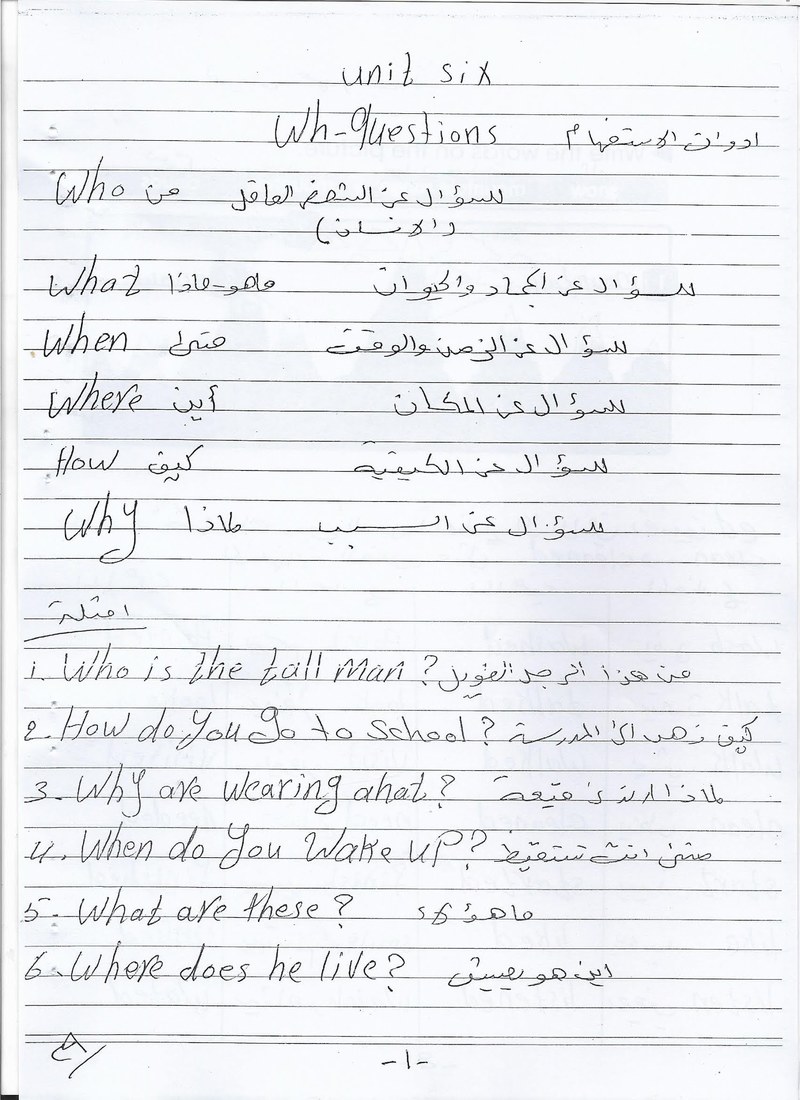 unit six
Wh-Questions ادوات الاستفهام
Who من للسؤال عن الشخص العاقل
(والانسان)
What ماهو-ماذا للسؤال عن الجماد والحيوان
When متى للسؤال عن الزمن والوقت
Where أين للسؤال عن المكان
How كيف للسؤال عن الكيفية
Why لماذا للسؤال عن السبب
امثلة
1. Who is the tall man? من هذا الرجل الطويل
2. How do you go to school? كيف تذهب الى المدرسة
3. Why are wearing a hat? لماذا قبعة
4. When do you wake up? متى انت تستيقظ
5- What are these?
6. Where does he live? اين هو يعيش
-1-